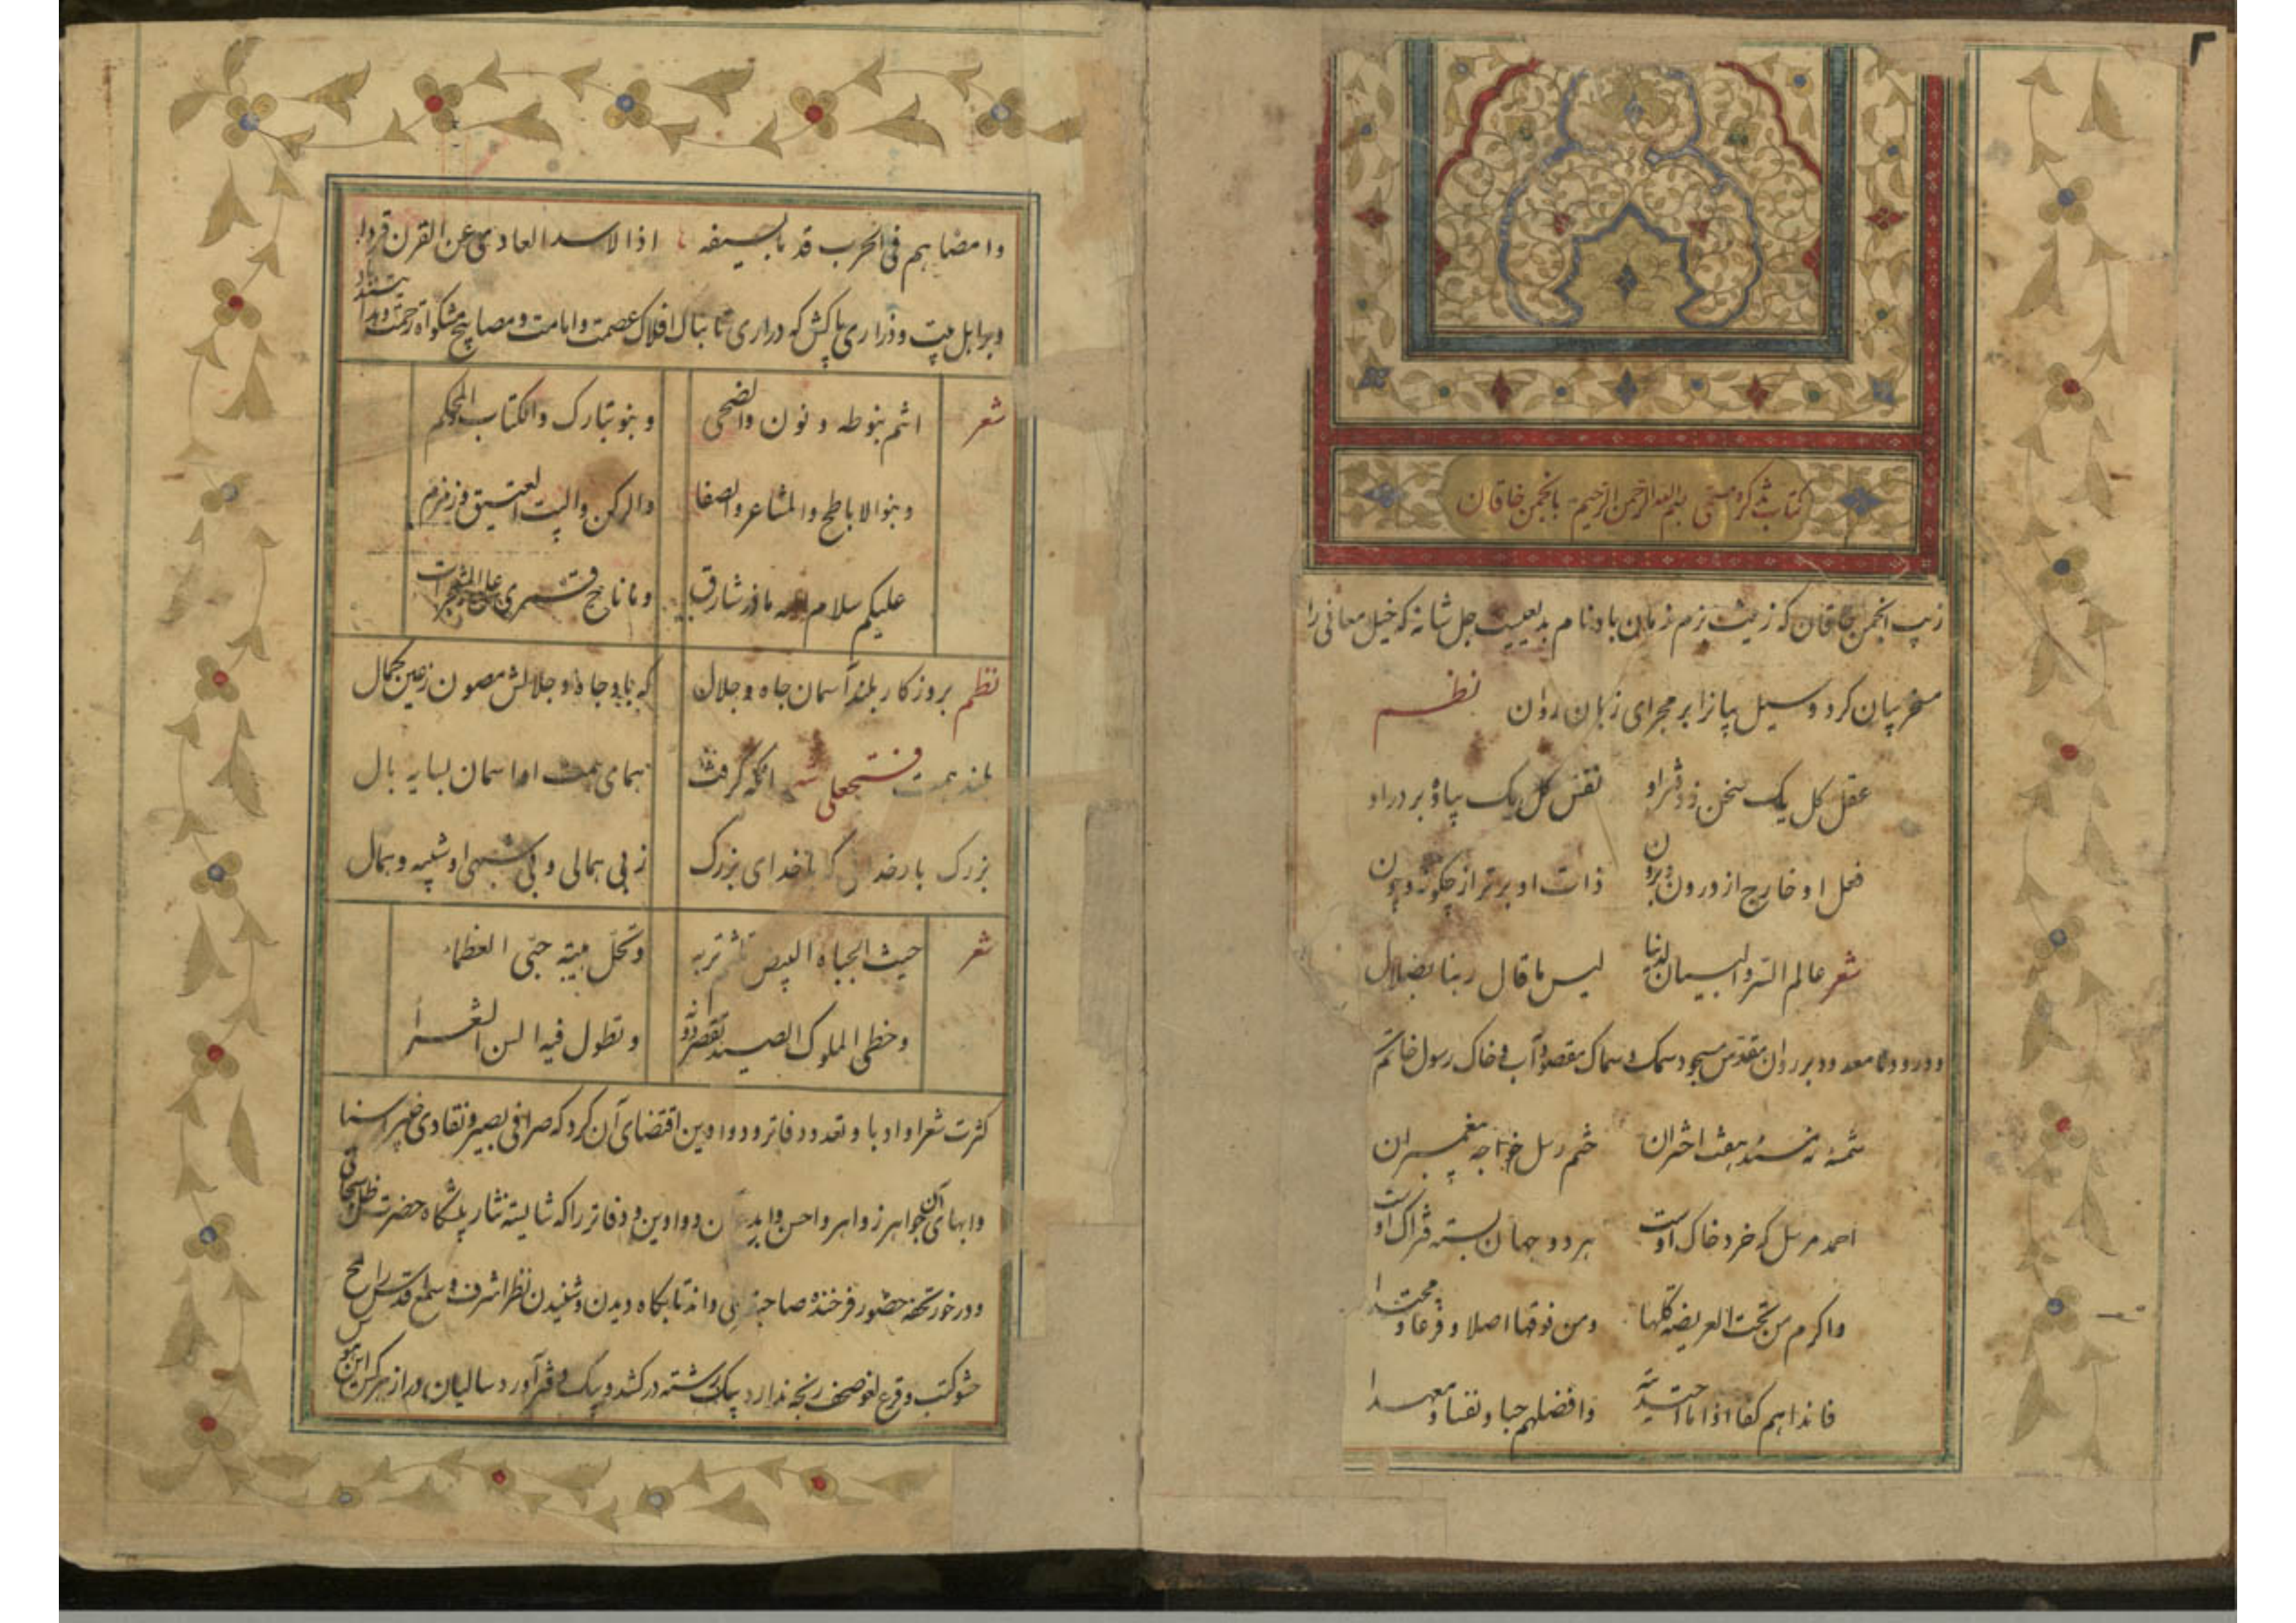 کتاب تذکره مسمی بسم الله الرحمن الرحیم بانجمن خاقان
زیب انجمن خاقان که زینت بزم زمان باد نام بدیعیست جل شانه که خیل معانی را
مسخر بیان کرد و سیل بیانرا بر مجرای زبان روان نظم
عقل کل یک سخن ز دفتر او نفس کل یک پیاده بر در او
فعل او خارج از درون و برون ذات او برتر از چگونه و چون
شعر عالم السر والبیان لدینا لیس ما قال ربنا بضلال
و درود نامعدود بر روان مقدس مسجود سمک و سماک مقصود آب و خاک رسول خاتم
شمسه نه مسند هفت اختران ختم رسل خواجه پیغمبران
احمد مرسل که خرد خاک اوست هر دو جهان بسته فتراک اوست
واکرم من تحت العریضه کلها ومن فوقها اصلا و فرعا و محتدا
فانداهم کفا اذا ما وافضلهم حبا ونفسا و
وامضاهم فی الحرب قد بالسیفه اذا الاسد العادی عن القرن
و بر اهل بیت و ذراری پاکش که دراری تابناک افلاک عصمت و امامت و مصابیح مشکواة رحمت و
شعر انتم بنو طه و نون والضحی و بنو تبارک والکتاب المحکم
و بنو الاباطح والمشاعر والصفا والرکن والبیت العتیق و زمزم
علیکم سلام الله ما ذر شارق و ما ناح قمری علی
نظم بروزکار بلند آسمان جاه و جلال که باد جاه و جلالش مصون ز عین کمال
بلند همت فتحعلی شه آنکه گرفت همای همت او اسمان بسایه بال
بزرک بار خدائی که با خدای بزرک ز بی همالی و بی شبهی او شبیه و همال
شعر حیث الجباه البیض تلثم تربه و تحل هیبته حبی العظماء
وخطی الملوک الصید تقصر و تطول فیه السن الشعراء
کثرت شعرا و ادبا و تعدد دفاتر و دواوین اقتضای آن کرد که صرافی بصیر و نقادی خبیر اسنا
و ابهای آن جواهر زواهر و احسن و ابدع آن دواوین و دفاتر را که شایسته نثار پیشگاه حضرت ظل
و درخور تحفه حضور فرخنده صاحبقرانی داند تا بگاه دیدن و شنیدن نظر اشرف و سمع اقدس را
حشو کتب و قرع لغو صحف رنجه ندارد بیک رشته در کشد و بیک دفتر آورد سالیان دراز هر کس را این هوس